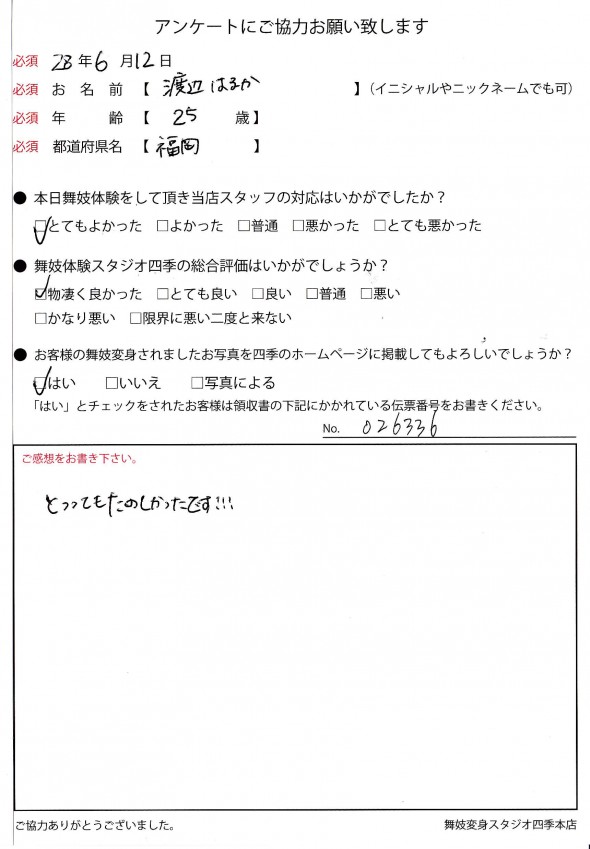 アンケートにご協力お願い致します
必須 28年6月12日
必須 お名前【 渡辺はるか 】（イニシャルやニックネームでも可）
必須 年齢【 25 歳】
必須 都道府県名【 福岡 】
● 本日舞妓体験をして頂き当店スタッフの対応はいかがでしたか？
☑とてもよかった □よかった □普通 □悪かった □とても悪かった
● 舞妓体験スタジオ四季の総合評価はいかがでしょうか？
☑物凄く良かった □とても良い □良い □普通 □悪い
□かなり悪い □限界に悪い二度と来ない
● お客様の舞妓変身されましたお写真を四季のホームページに掲載してもよろしいでしょうか？
☑はい □いいえ □写真による
「はい」とチェックをされたお客様は領収書の下記にかかれている伝票番号をお書きください。
No. 026336
ご感想をお書き下さい。
とってもたのしかったです!!!
ご協力ありがとうございました。 舞妓変身スタジオ四季本店